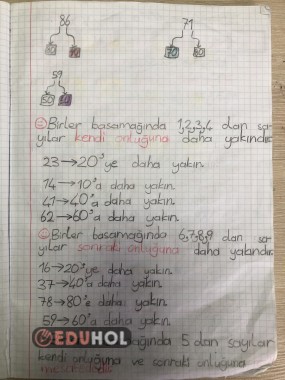 86 71
70 80
59
50
Birler basamağında 1,2,3,4 olan sa-
yılar kendi onluğuna daha yakındır.
23→20'ye daha yakın.
14→10'a daha yakın.
41→40'a daha yakın.
62→60'a daha yakın.
Birler basamağında 6,7,8,9 olan sa-
yılar sonraki onluğuna daha yakındır.
16→20'ye daha yakın.
37→40'a daha yakın.
78→80'e daha yakın.
59→60'a daha yakın.
EDUHOL
5 olan sayılar
kendi onluğuna ve sonraki onluğuna